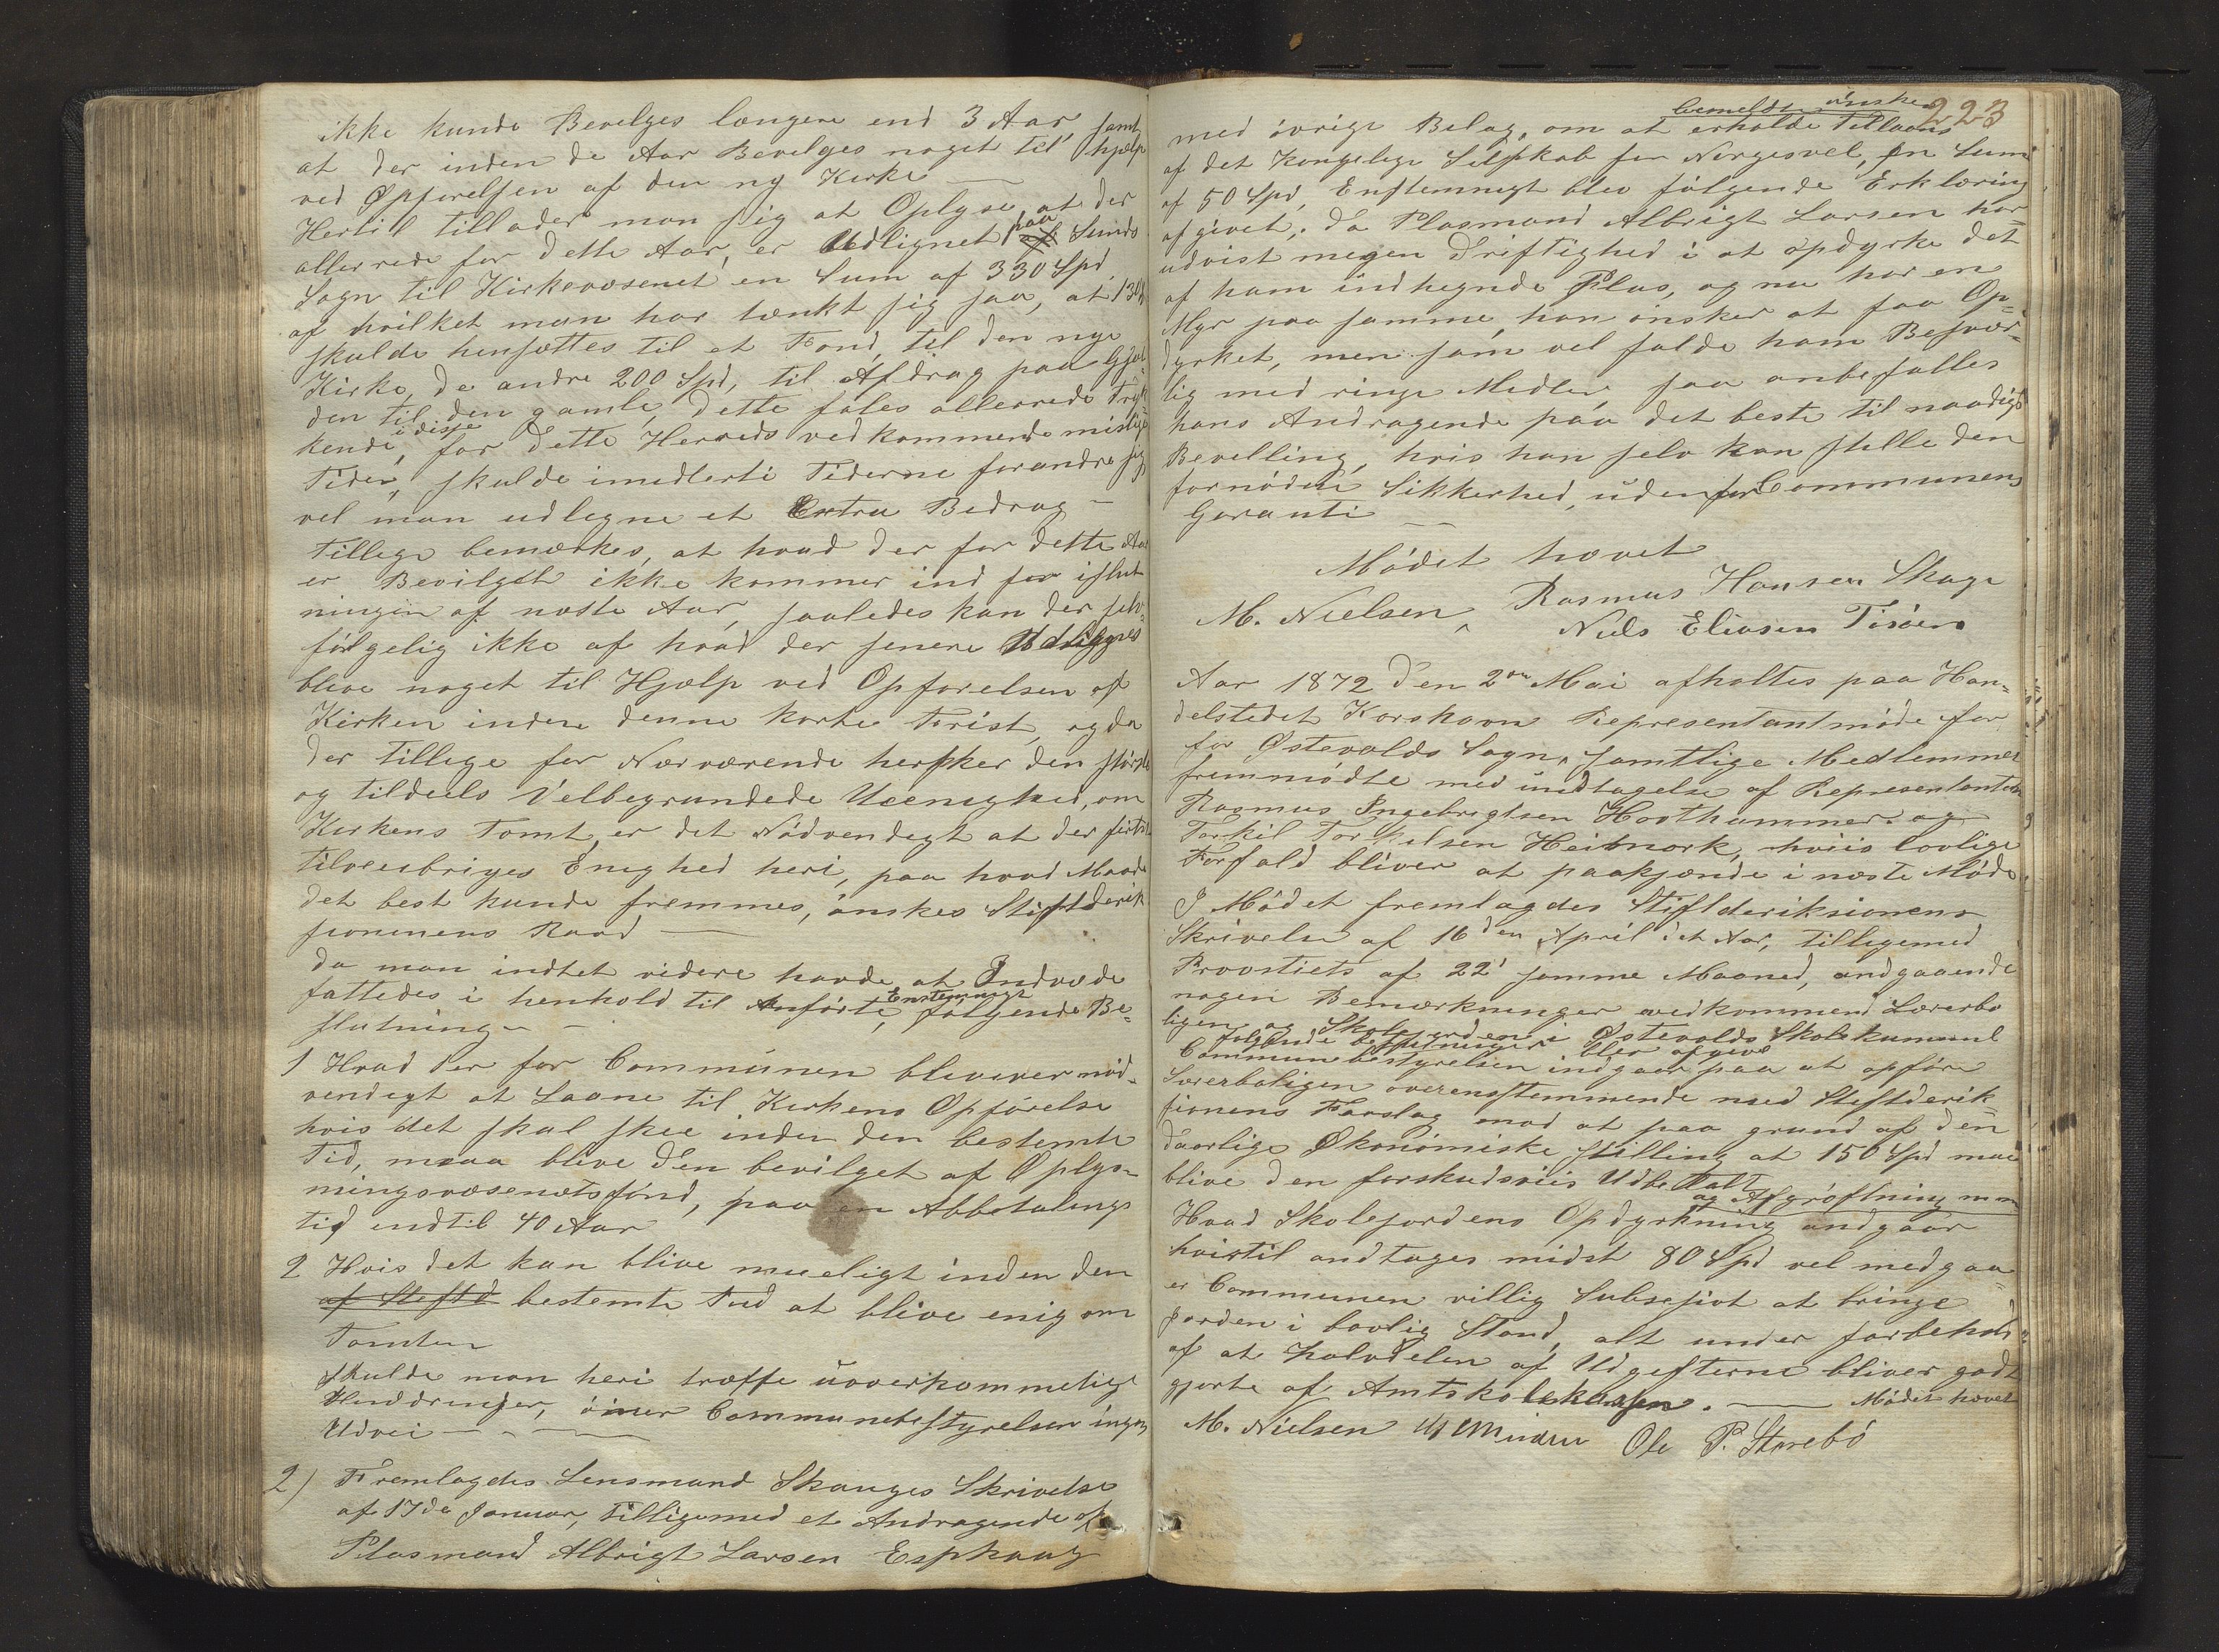 ikke kunde Bevelges længere end 3 Aar samt
at der inden de Aar Bevelges noget til hjælp
ved Opførelsen af den ny Kirke —
Hertil tillader man sig at Oplyse, at der
allerrede for dette Aar, er Udlignet paa Sunds
Sogn til Kirkevæsenet en Sum af 330 Spd
af hvilket man har tænkt sig saa, at 130
skulde hensættes til et Fond, til den nye
Kirke, de andre 200 Spd, til Afdrag paa Gjæl-
den til den gamle, dette føles allerrede tryk-
kende, i disse for dette Herreds vedkommende mislige
Tider, skulde imedlerti Tiderne forandre sig
vel man udlegne et Extra Bedrag —
Tillige bemærkes, at hvad der for dette Aar
er Bevilget ikke kommer ind før islut
ningen af næste Aar, saaledes kan der selv-
følgelig ikke af hvad der senere Udlignes
blive noget til Hjælp ved Opførelsen af
Kirken inden denne korte Frist, og da
der tillige for Nærværende hersker den største
og tildeels Velbegrundede Ueenighed, om
Kirkens Tomt, er det Nødvendigt at der først
tilveiebriges Enighed heri, paa hvad Maade
det best kunde fremmes, ønskes Stiftderik
sionenens Raad —
da man indtet videre havde at Indvede
fattedes i henhold til Anførte, Enstemmigt følgende Be-
slutning —
1 Hvad der for Communen bliver nød-
vendigt at Laane til Kirkens Opførelse
hvis det skal skee inden den bestemte
Tid, maa blive den bevilget af Oplys-
ningsvæsenets fond, paa en Abbetalings
tid indtil 40 Aar
2 Hvis det kan blive mueligt inden den
af Steftd bestemte Tid at blive enig om
Tomten
skulde man heri træffe uoverkommelige
Hinddringer, øiner Communebestyrelsen ingen
Udvei —
2) Fremlagdes Lensmand Skauges Skrivelse
af 17de Januar, tilligemed et Andragende af
Plasmand Albrigt Larsen Esphaug
223
med øvrige Belag, om at bemeldte ønsker erholde Tillaans
af det Kongelige Selskab for Norgesvel, en Sum
af 50 Spd, Enstemmigt blev følgende Erklæring
afgivet, da Plasmand Albrigt Larsen har
udvist megen Driftighed i at opdyrke det
af ham indhegnde Plas, og nu har en
Myr paa samme, han ønsker at faa Op-
dyrket, men som vel falde ham Besvær-
lig med ringe Medler, saa anbefalles
hans Andragende paa det beste til naadigst
Bevelling, hvis han selv kan stille den
fornødne Sikkerhed, uden for Communens
Garanti —
Mødet hævet
M. Nielsen, Rasmus Hansen Skage
Niels Eliasen Tisøen
Aar 1872 den 2den Mai afholtes paa Han-
delstedet Korshavn Representantmøde for
for Østevolds Sogn, samtlige Medlemmer
fremmødte med undtagelse af Representanten
Rasmus Ingebrigtsen Hoothammer og
Torkil Torkilsen Heimark, hviis lovlige
Forfald bliver at paakjænde i næste Møde
I Mødet fremlagdes Stiftderiksionens
Skrivelse af 16den April det Aar, tilligemed
Provstiets af 22' samme Maaned, andgaaende
nogen Bemærkninger vedkommend Lærerbo
ligen og Skolejorden i Østevolds Skolekumunl
følgende beslutninger blev afgivet
Communebestyrelsen indgaar paa at opføre
Lærerboligen overensstemmende med Steftderik-
sionens Forslag mod at paa grund af den
daarlige Økonomiske stilling at 150 Spd maa
blive den forskudsviis Udbetalt
Hvad Skolejordens Opdyrkning og Afgrøftning m m andgaar
hvistil andtages midst 80 Spd vel medgaa
er Communen villig Subsesivt at bringe
Jorden i lovlig Stand, alt under forbehold
af at halvdelen af Udgefterne bliver godt
gjorte af Amtskolekassen. — Mødet hævet
M. Nielsen Ole P. Storebø